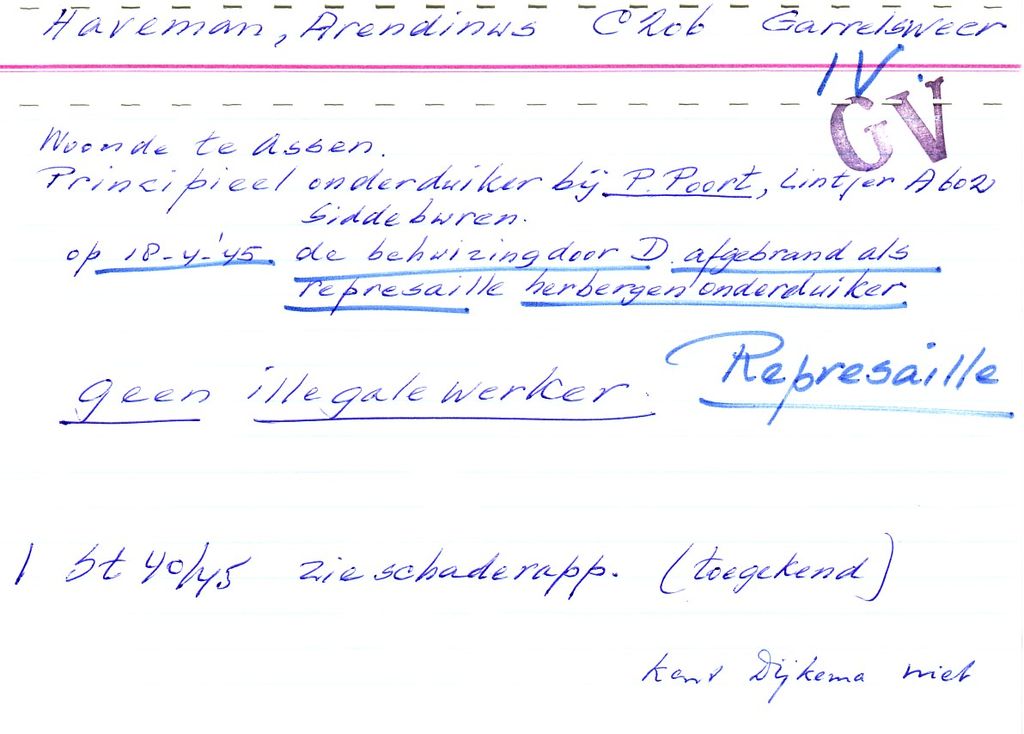 Haveman, Arendinus C206 Garrelsweer
IV
GV
Woonde te Assen.
Principieel onderduiker bij P. Poort, Lintjer A602
Siddeburen.
op 18-4-'45. de behuizing door D. afgebrand als
represaille herbergen onderduiker
geen illegale werker.
Represaille
1 St 40/45 zie schaderapp. (toegekend)
Kent Dijkema niet